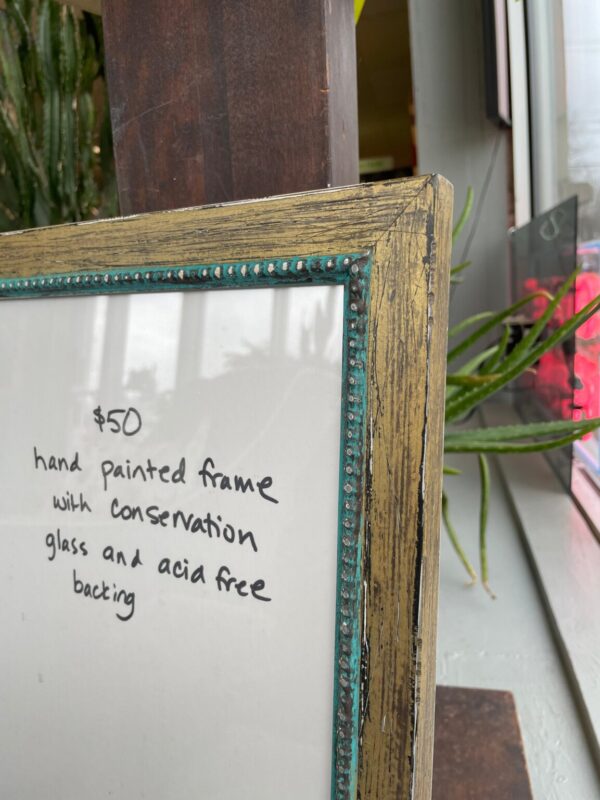 $50
hand painted frame
with conservation
glass and acid free
backing